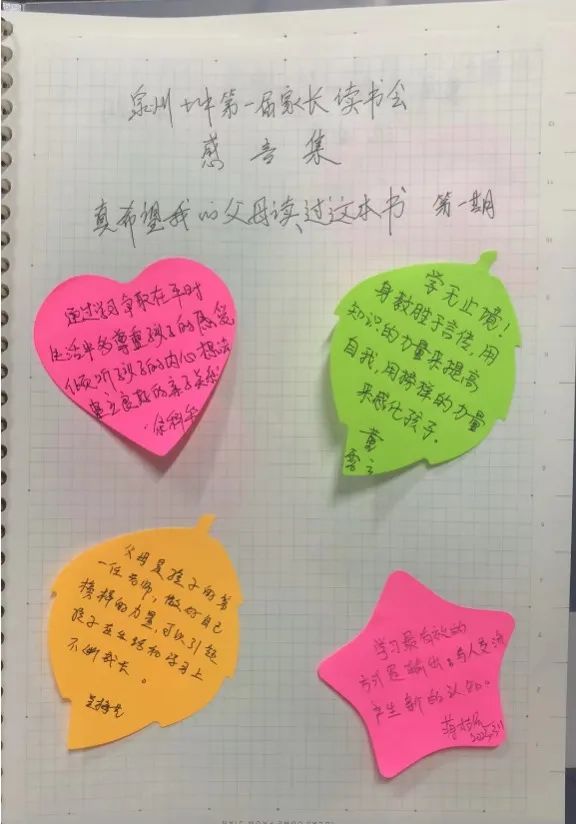 泉州十中第一届家长读书会
感言集
真希望我的父母读过这本书 第一期
通过学习争取在平时
生活中多尊重孩子的感受
倾听孩子的内心想法
建立良好的亲子关系
学无止境！
身教胜于言传，用
知识的力量来提高
自我，用榜样的力量
来感化孩子。
黄
雪云
父母是孩子的第
一任老师，做好自己
榜样的力量，可以引起
孩子在生活和学习上
不断成长。
学习最有效的
方式是输出：与人交流
产生新的认知。